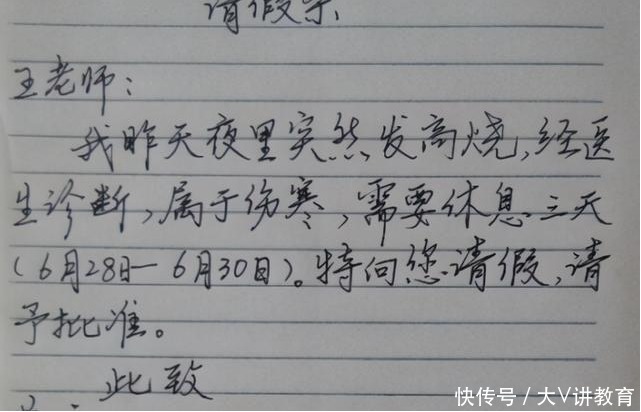 请假条
王老师：
我昨天夜里突然发高烧，经医
生诊断，属于伤寒，需要休息三天
（6月28日—6月30日）。特向您请假，请
予批准。
此致
快传号／大V讲教育